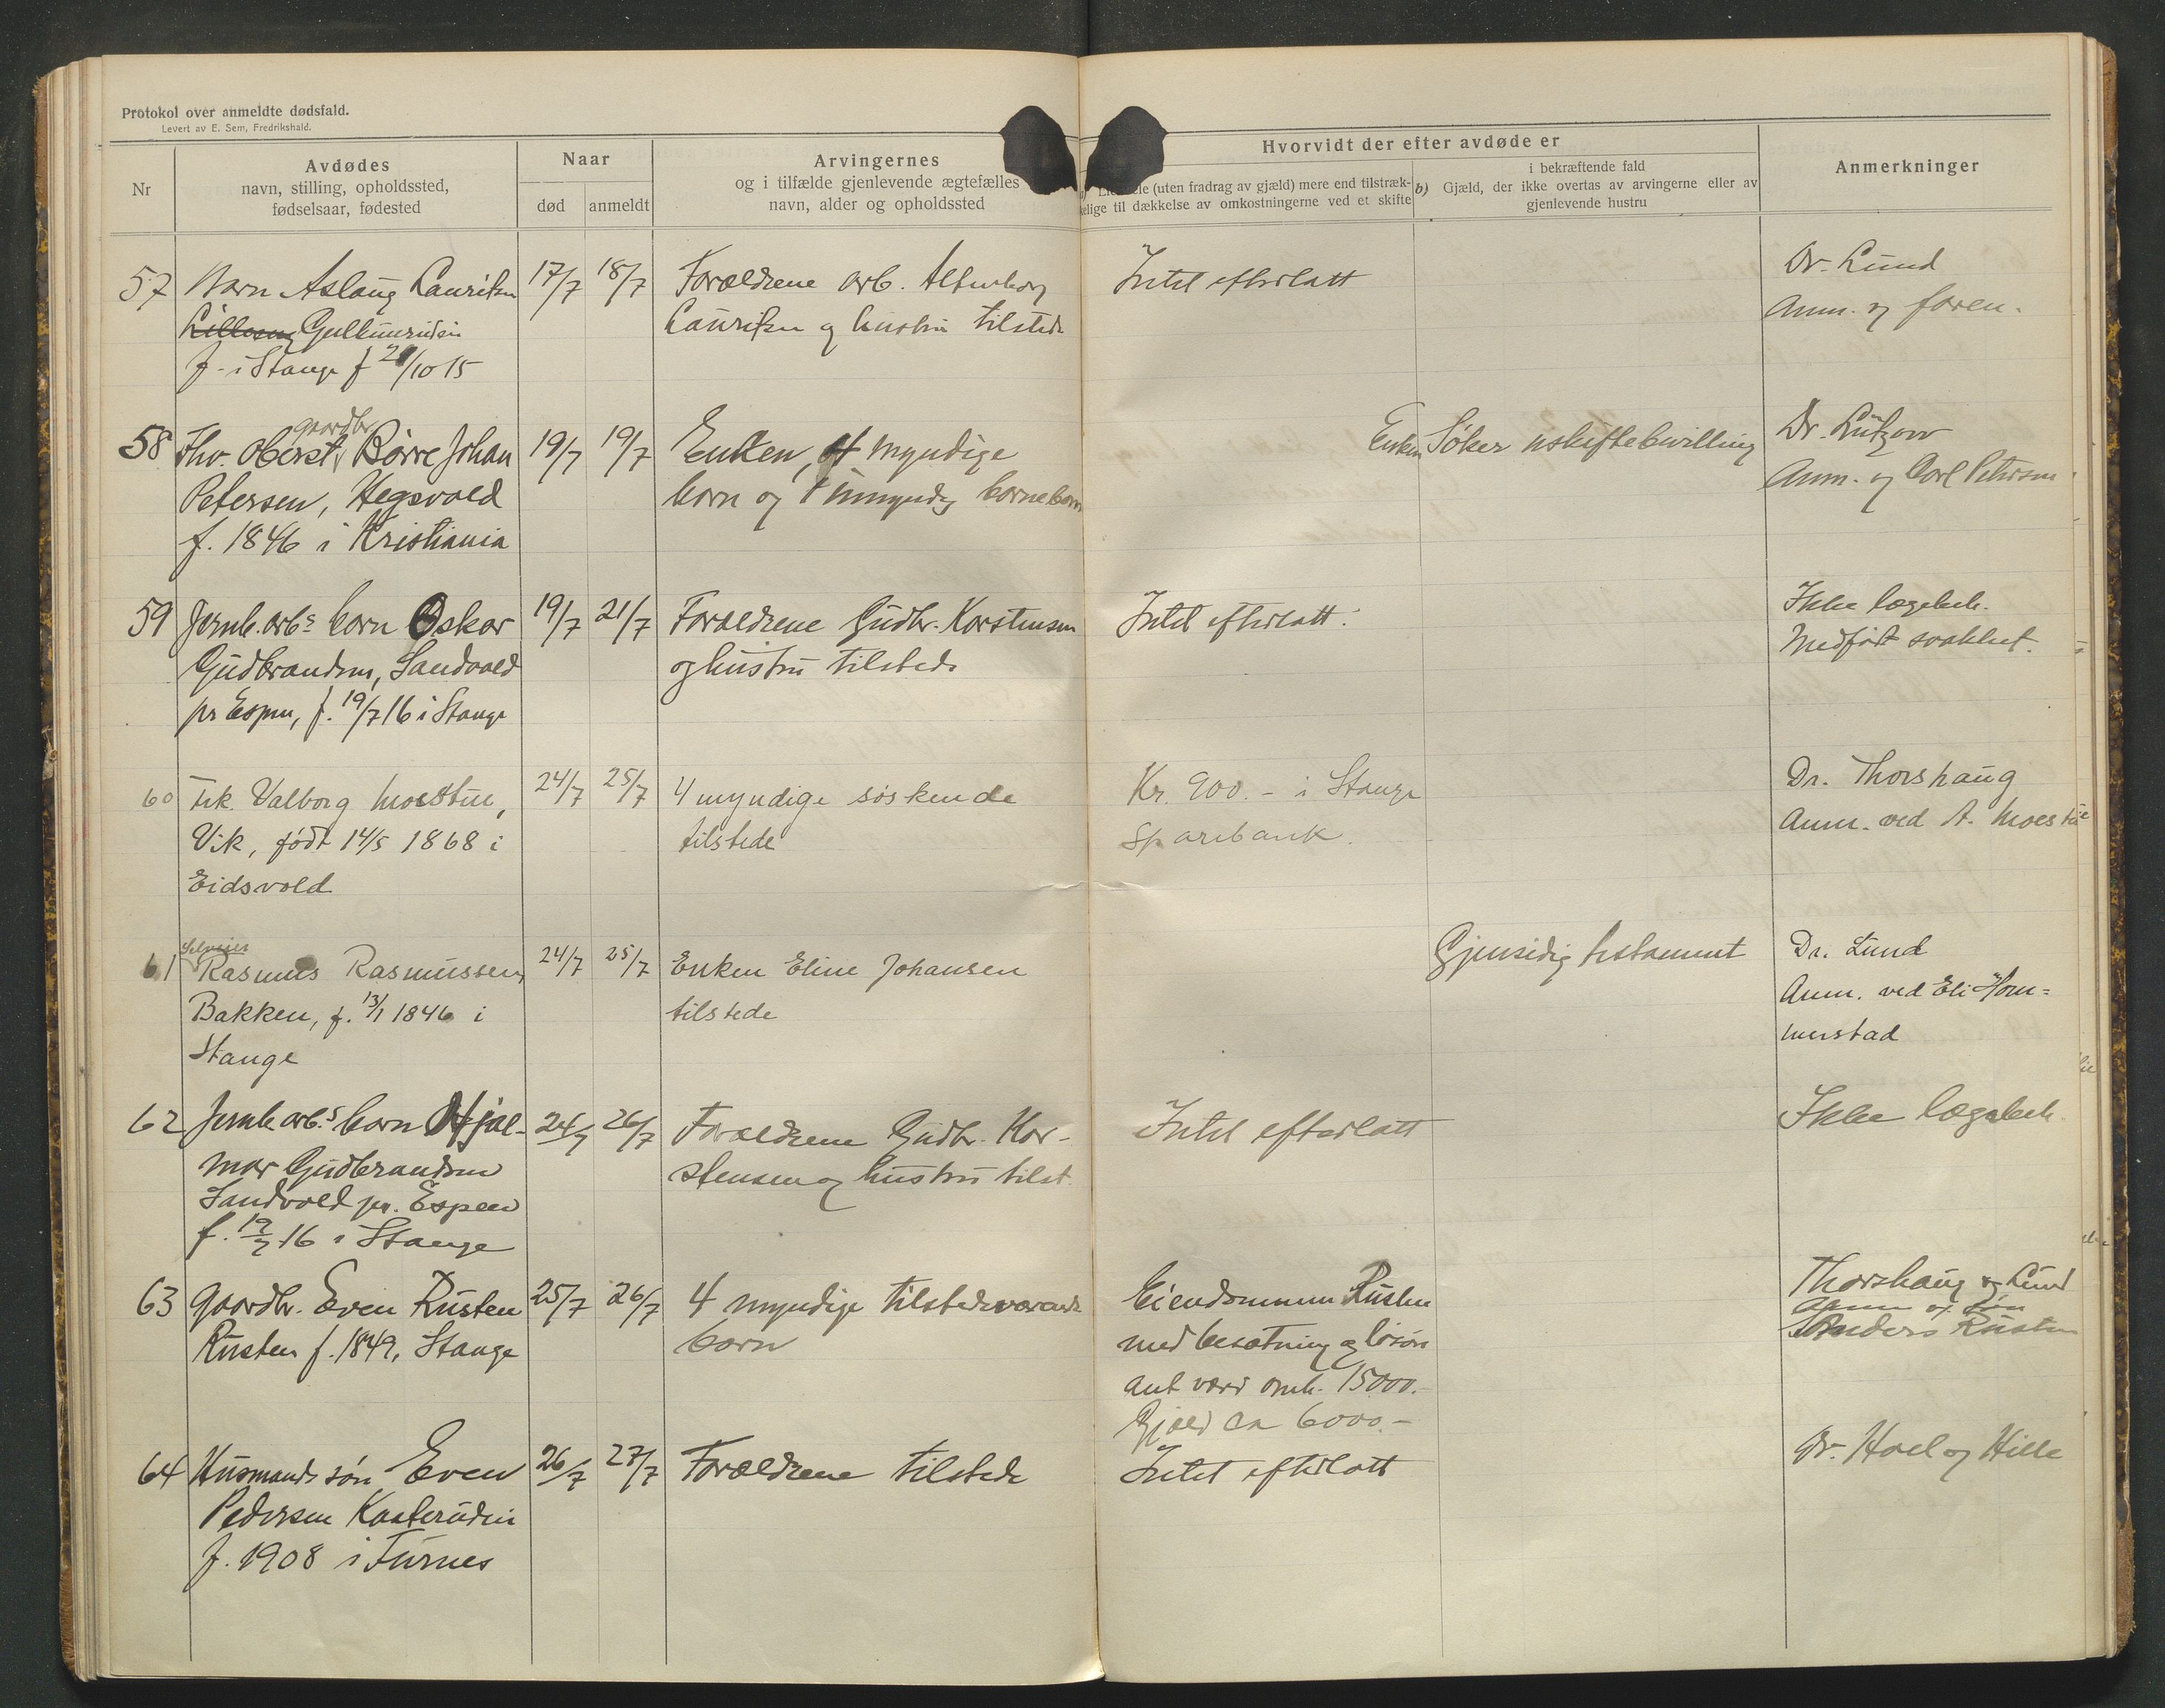 Protokol over anmeldte dødsfald.
Levert av E. Sem, Fredrikshald.
Nr
Avdødes
navn, stilling, opholdssted,
fødselsaar, fødested
Naar
død
anmeldt
Arvingernes
og i tilfælde gjenlevende ægtefælles
navn, alder og opholdssted
Hvorvidt der efter avdøde er
(uten fradrag av gjæld) mere end tilstræk-
kelige til dækkelse av omkostningerne ved et skifte
b)
i bekræftende fald
Gjæld, der ikke overtas av arvingerne eller av
gjenlevende hustru
Anmerkninger
57
Barn Aslaug Lauritsen
Gullunrudein
f. i Stange f 20/10 15
17/7
18/7
Forældrene arb.
Lauritsen og hustru tilstede
Intet efterlatt
Dr. Lund
Anm. og faren.
58
gaardbr.
Fhv. Oberst, Börre Johan
Petersen, Hegsvold
f. 1846 i Kristiania
19/7
19/7
Enken, 4 myndige
barn og 1 umyndig barnebarn
Enken Söker uskiftebevilling
Dr. Lützow
Anm. og Carl Petersen.
59
Jernb. arb.s barn Oskar
Gudbrandsen, Sandvold
pr Espen, f. 19/7 16 i Stange
19/7
21/7
Forældrene Gudbr. Karstensen
og hustru tilstede
Intet efterlatt.
Ikke lægebeh.
Medfödt svakhet.
60
Frk. Valborg Moestue,
Vik, født 14/5 1868 i
Eidsvold
24/7
25/7
4 myndige søskende
tilstede
Kr. 900.- i Stange
Sparebank.
Dr. Thorshaug
Anm. ved A. Moestue
61
Selveier
Rasmus Rasmussen,
Bakken, f. 13/1 1846 i
Stange
24/7
25/7
Enken Eline Johansen
tilstede
Gjensidig testament
Dr. Lund
Anm. ved Eli Hom=
merstad
62
Jernb. arb.s barn Hjal-
mar Gudbrandsen
Sandvold pr. Espen
f. 19/7 16 i Stange
24/7
26/7
Forældrene Gudbr. Kar-
stensen og hustru tilst.
Intet efterlatt
Ikke lægebeh.
63
Gaardbr. Even Rusten
Rusten f. 1849, Stange
25/7
26/7
4 myndige tilstedeværende
barn
Eiendommen Rusten
med besætning og løsøre
ant værd omk. 15000.-
Gjæld ca 6000.-
Thorshaug og Lund
Anm av søn
Anders Rusten
64
Husmands søn Even
Pedersen Kasterudein
f. 1908 i Furnes
26/7
27/7
Forældrene tilstede
Intet efterlatt
Dr. Hoel og Hille